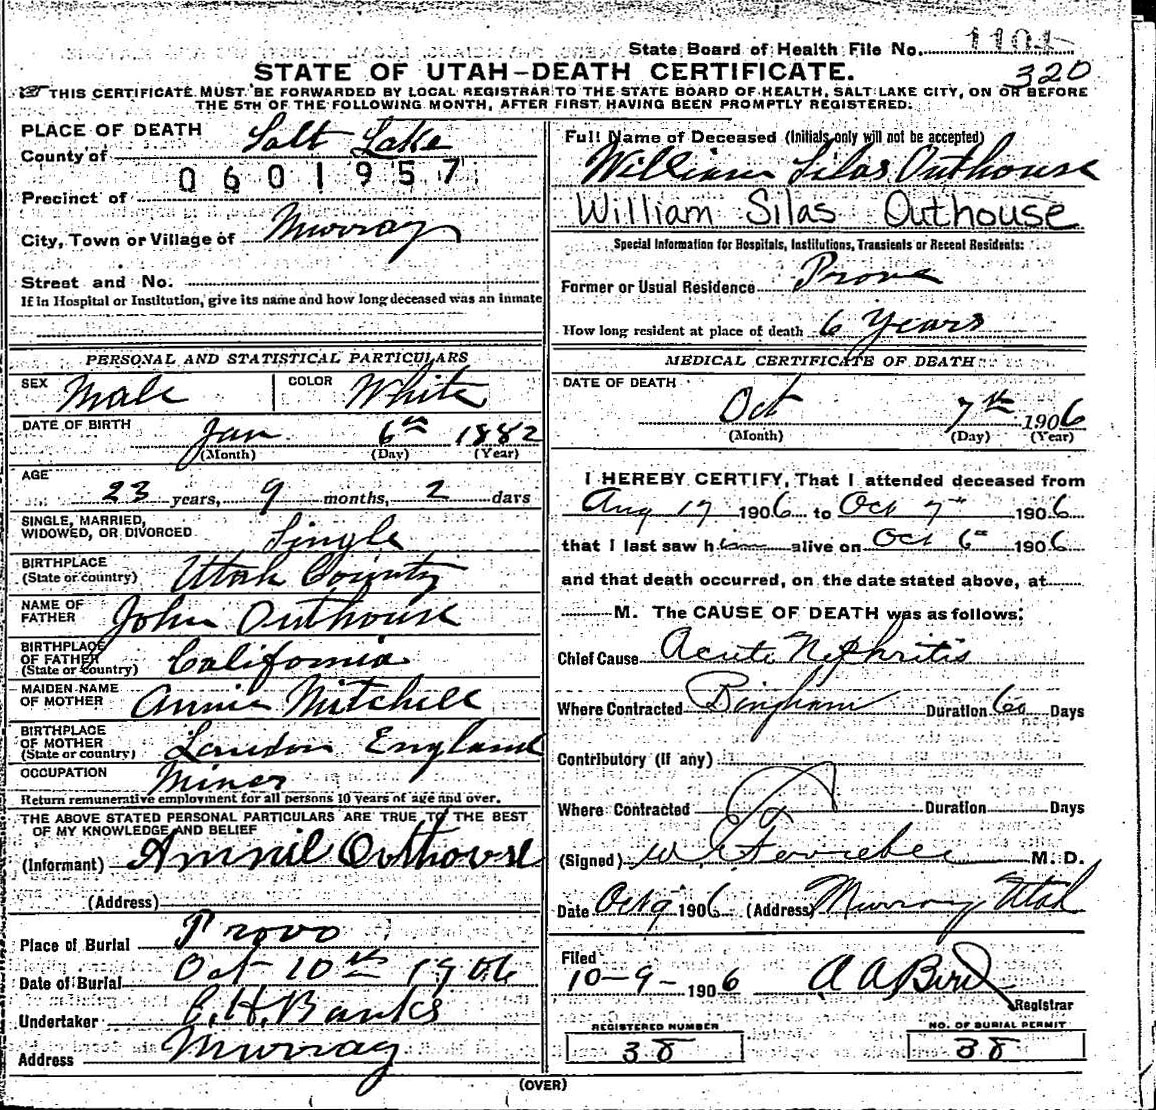 State Board of Health File No. 1101
320
STATE OF UTAH-DEATH CERTIFICATE.
THIS CERTIFICATE MUST BE FORWARDED BY LOCAL REGISTRAR TO THE STATE BOARD OF HEALTH, SALT LAKE CITY, ON OR BEFORE
THE 5TH OF THE FOLLOWING MONTH, AFTER FIRST HAVING BEEN PROMPTLY REGISTERED:
PLACE OF DEATH
County of Salt Lake
0601957
Precinct of
City, Town or Village of Murray
Street and No.
If in Hospital or Institution, give its name and how long deceased was an inmate
PERSONAL AND STATISTICAL PARTICULARS
SEX Male COLOR White
DATE OF BIRTH
Jan 6th 1882
(Month) (Day) (Year)
AGE
23 years, 9 months, 2 days
SINGLE, MARRIED,
WIDOWED, OR DIVORCED Single
BIRTHPLACE
(State or country) Utah County
NAME OF
FATHER John Outhouse
BIRTHPLACE
OF FATHER
(State or country) California
MAIDEN NAME
OF MOTHER Annie Mitchell
BIRTHPLACE
OF MOTHER
(State or country) London England
OCCUPATION Miner
Return remunerative employment for all persons 10 years of age and over.
THE ABOVE STATED PERSONAL PARTICULARS ARE TRUE TO THE BEST
OF MY KNOWLEDGE AND BELIEF
(Informant) Outhouse
(Address)
Place of Burial Provo
Date of Burial Oct 10th 1906
Undertaker C.H. Banks
Address Murray
Full Name of Deceased (Initials only will not be accepted)
William Silas Outhouse
William Silas Outhouse
Special Information for Hospitals, Institutions, Transients or Recent Residents:
Former or Usual Residence Provo
How long resident at place of death 6 Years
MEDICAL CERTIFICATE OF DEATH
DATE OF DEATH
Oct 7th 1906
(Month) (Day) (Year)
I HEREBY CERTIFY, That I attended deceased from
Aug 17 1906 to Oct 7th 1906
that I last saw him alive on Oct 6th 1906
and that death occurred, on the date stated above, at
M. The CAUSE OF DEATH was as follows:
Chief Cause Acute Nephritis
Where Contracted Bingham Duration 60 Days
Contributory (If any)
Where Contracted Duration Days
(Signed) M. D.
Date Oct 9 1906 (Address) Murray Utah
Filed
10-9-1906 A A Bird
Registrar
REGISTERED NUMBER
38
NO. OF BURIAL PERMIT
38
(OVER)